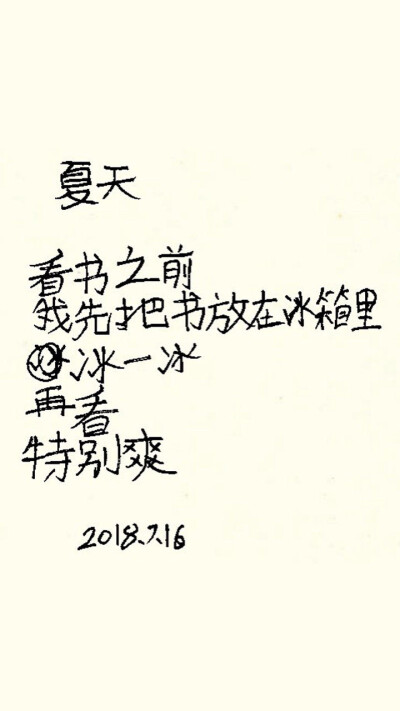 夏天
看书之前
我先把书放在冰箱里
冰一冰
再看
特别爽
2018.7.16